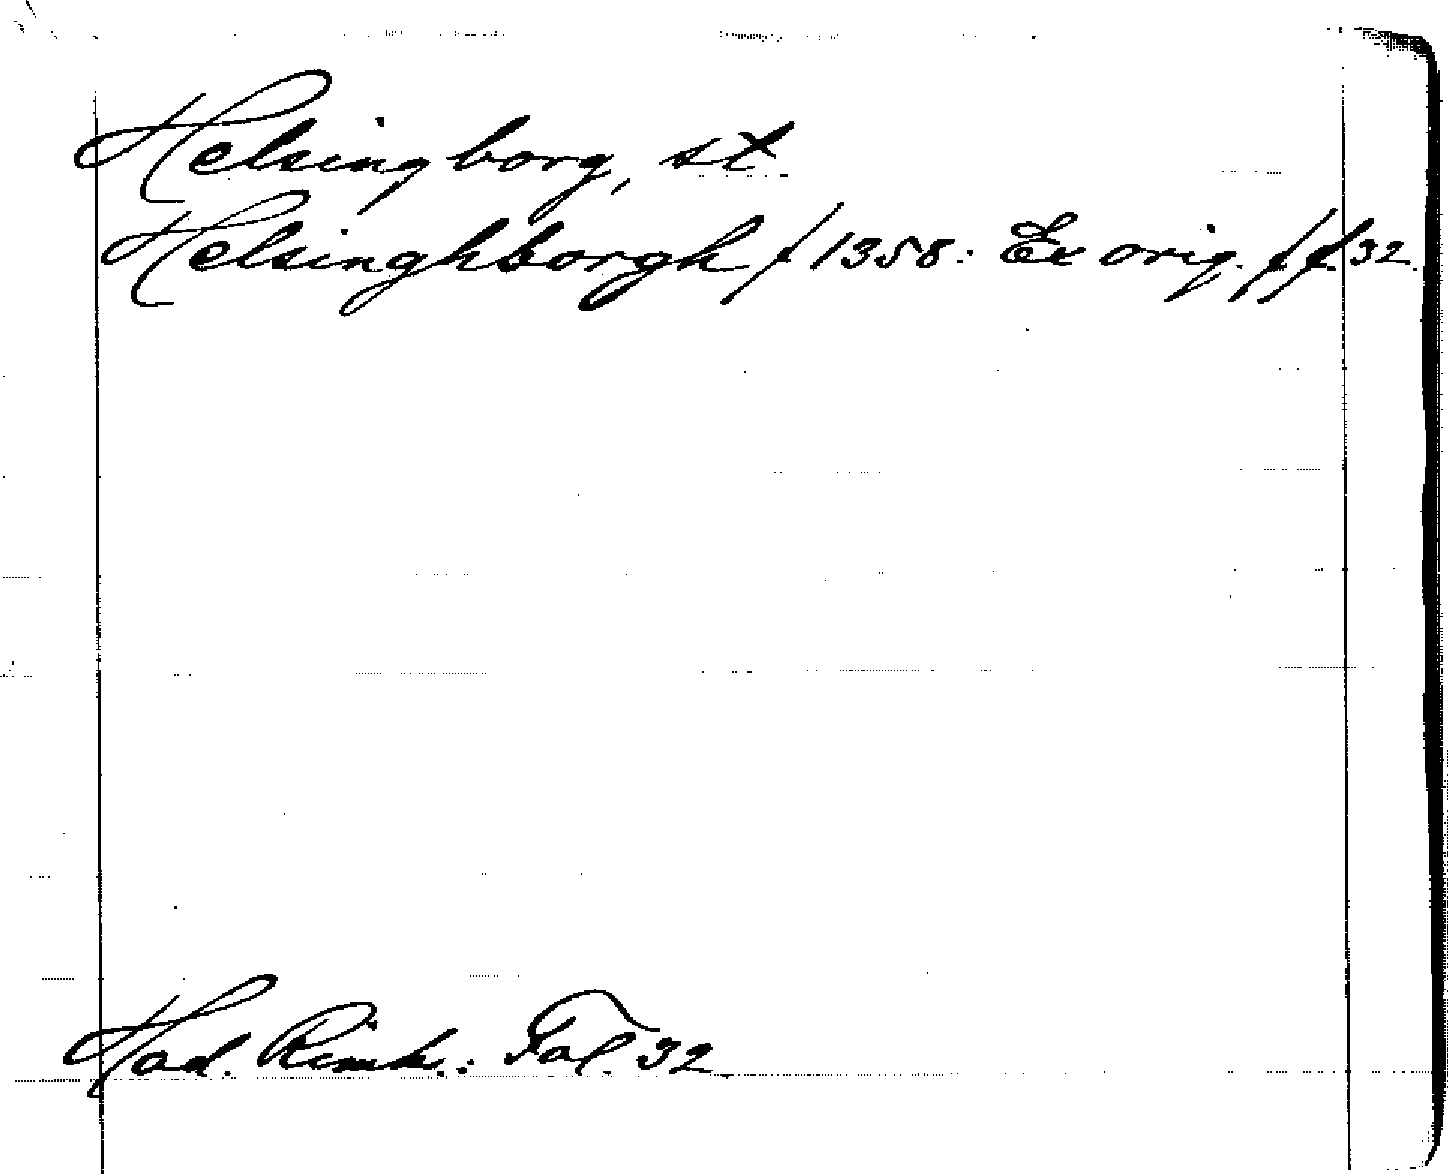 Helsingborg, st
Helsinghborgh f 1358: Ex orig. ff 32.
Had. Rimk.: Fol. 32